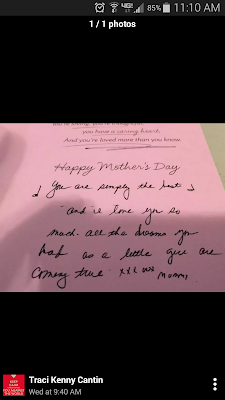 85% 11:10 AM
1 / 1 photos
you have a caring heart.
And you're loved more than you know.
Happy Mother's Day
♩ You are simply the best ♩
and we love you so
much. all the dreams you
had as a little girl are
coming true xxx Mommy
Traci Kenny Cantin
Wed at 9:40 AM